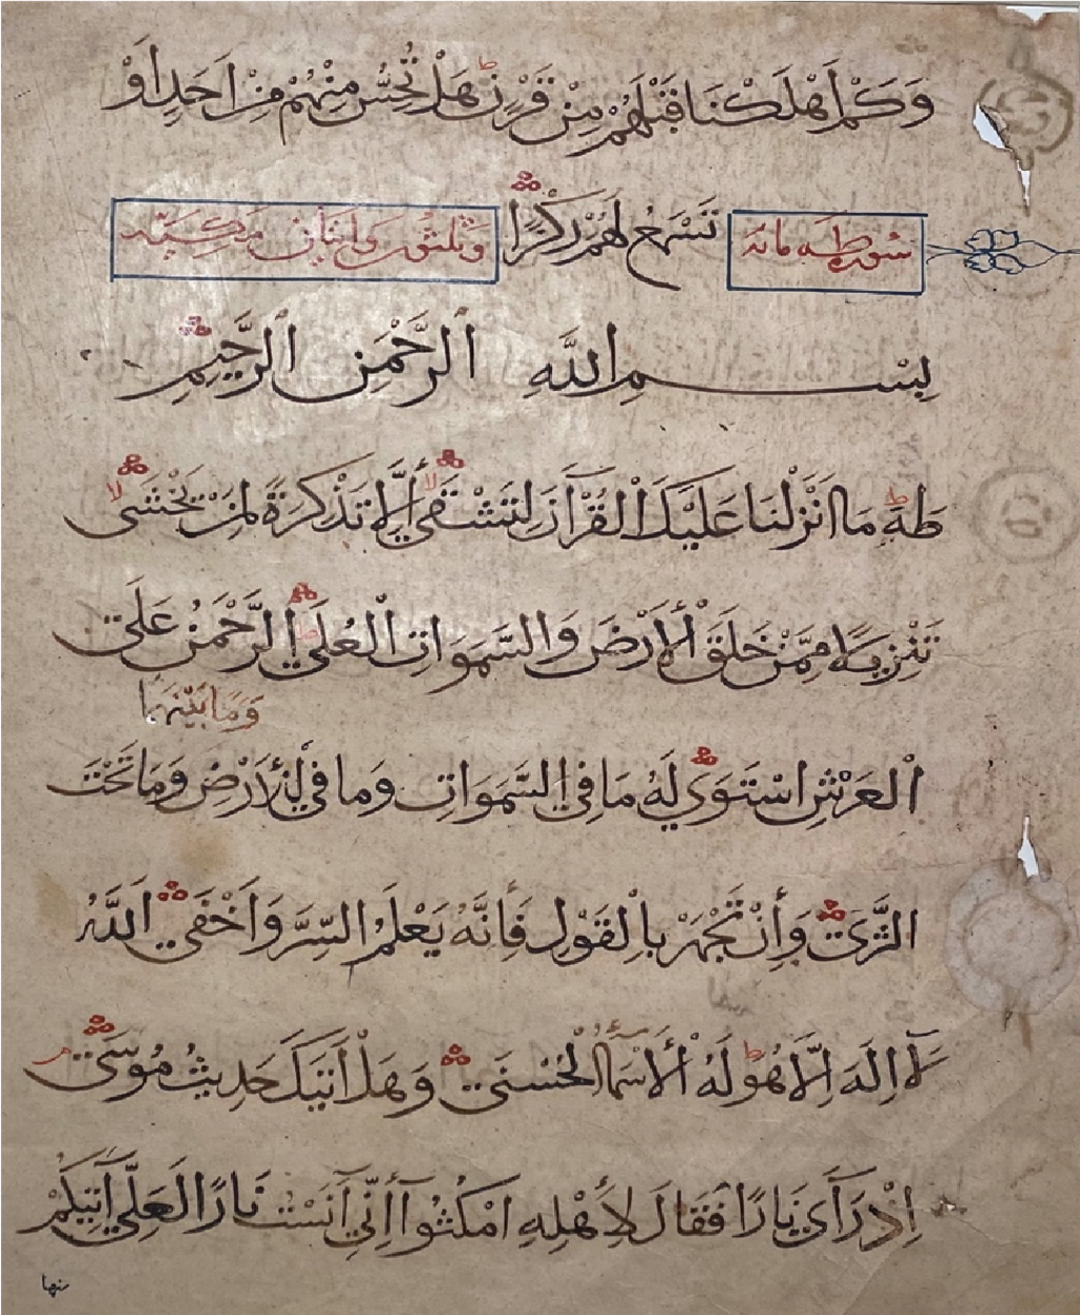 وَكَمْ أَهْلَكْنَا قَبْلَهُمْ مِنْ قَرْنٍ ط هَلْ تُحِسُّ مِنْهُمْ مِنْ اَحَدٍ اَوْ
سورة طه مائة
تَسْمَعُ لَهُمْ رِكْزًا
وثلثون واثنان مكية
بِسْمِ اللَّهِ الرَّحْمَٰنِ الرَّحِيمِ
طٰهٰ ط مَا اَنْزَلْنَا عَلَيْكَ الْقُرْآنَ لِتَشْقَىٰ لا أِلَّا تَذْكِرَةً لِمَنْ يَخْشَىٰ لا
تَنْزِيلًا مِمَّنْ خَلَقَ الْأَرْضَ وَالسَّمَوَاتِ الْعُلَىٰ ط الرَّحْمَنُ عَلَى
وَمَا بَيْنَهُمَا
الْعَرْشِ اسْتَوَىٰ لَهُ مَا فِي السَّمَوَاتِ وَمَا فِي الْأَرْضِ وَمَا تَحْتَ
الثَّرَىٰ وَأِنْ تَجْهَرْ بِالْقَوْلِ فَاِنَّهُ يَعْلَمُ السِّرَّ وَاَخْفَىٰ اَللَّهُ
لَآ اِلَهَ اِلَّا هُوَ ط لَهُ الْأَسْمَآءُ الْحُسْنَىٰ وَهَلْ اَتَيكَ حَدِيثُ مُوسَىٰ م
اِذْ رَأَىٰ نَارًا فَقَالَ لِأَهْلِهِ امْكُثُوآ اِنِّي آنَسْتُ نَارًا لَعَلِّي آتِيكُمْ
منها